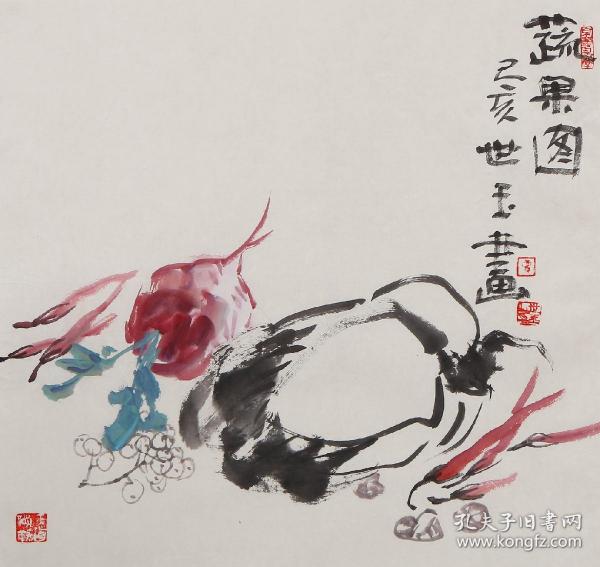 蔬果图
己亥世玉画
孔夫子旧书网
www.kongfz.com